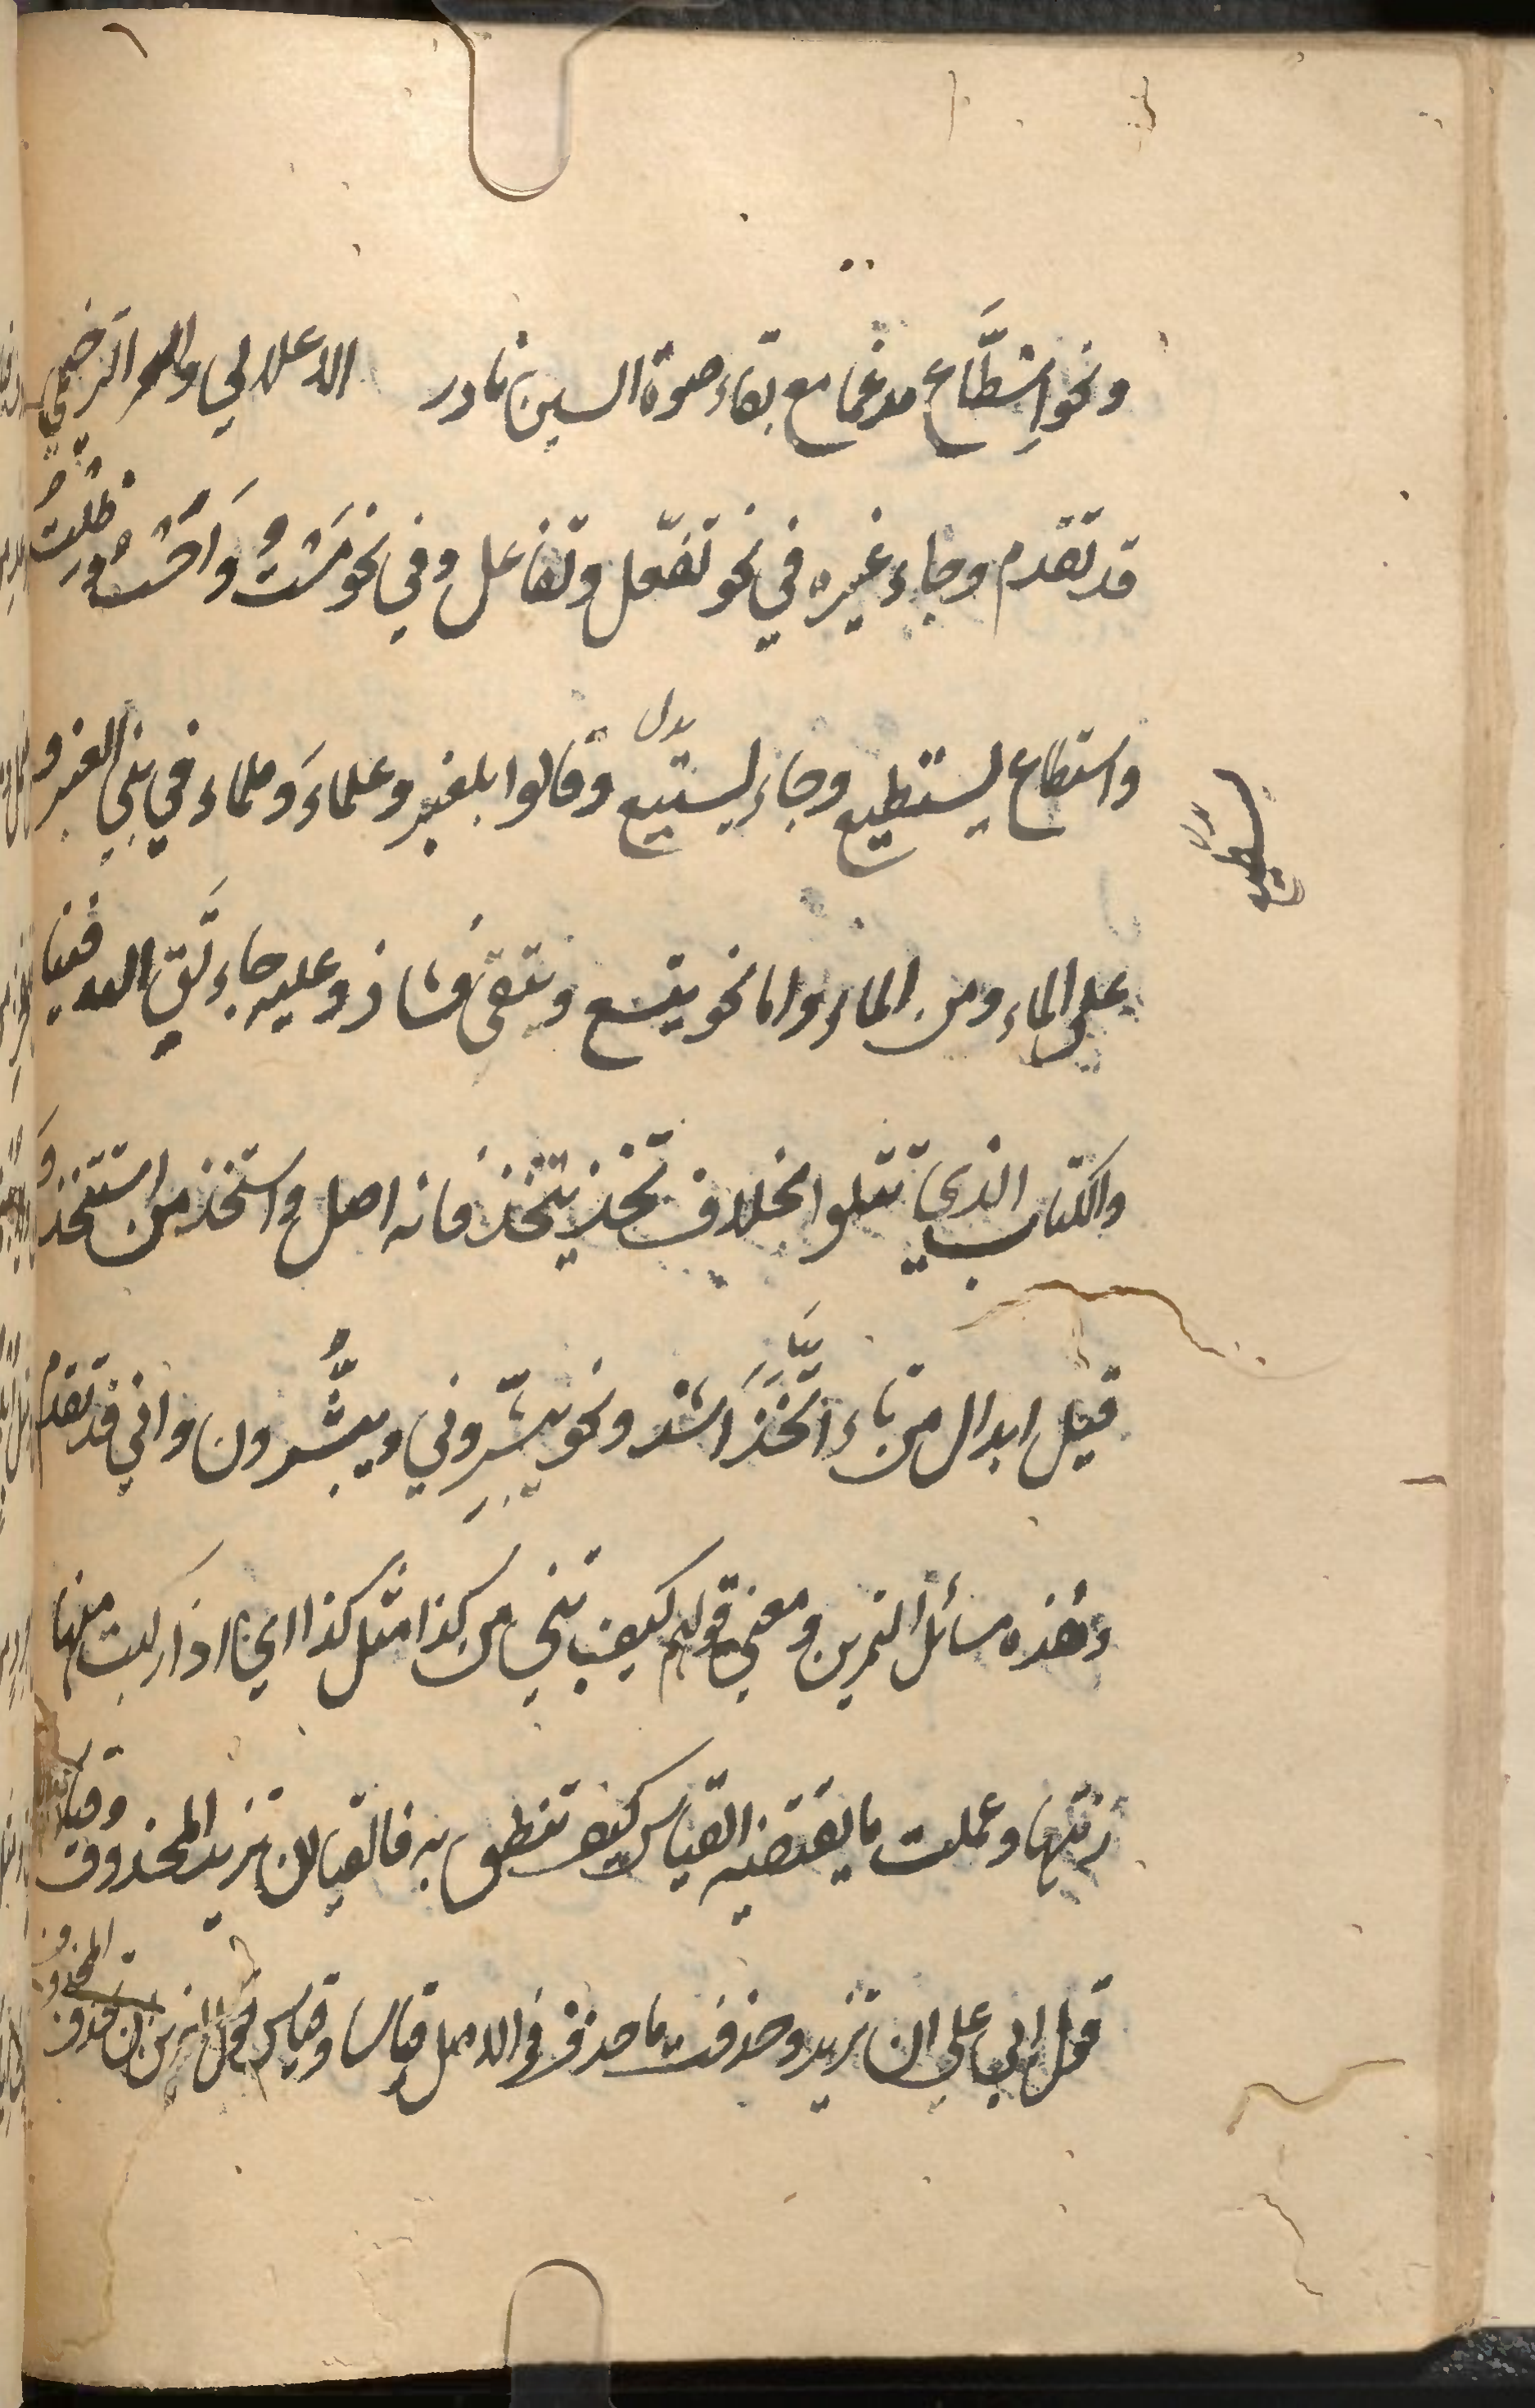 ونحو اسْطَّاع مدغما مع بقاء صوة السين نادر الاعلالي والترخيمي
قد تقدم وجاء غيره في نحو تفعّل وتفاعل وفي نحو مَسْتُ وَاَحَسْتُ وظَلْتُ
واستطاع يستطيع وجاء يستيع وقالوا بلعنبر وعلماءَ وملماء في بني العنبر و
بدل
يسطيع
بدل
على الماء ومن الماء واما نحو يتسع ويتقى فشاذ وعليه جاء تَّقِ الله فينا
والكتاب الذي تتلوا بخلاف تخذ يتخذ فانه اصل واستخذ من استتخذ و
قيل ابدال من تاء اتَّخَذَ اشذ ونحو تبشّروني ويبشّرون واني قد تقدم
وهذه مسائل التمرين ومعنى قولهم كيف تبني من كذا مثل كذا اي اذا ركبت منها
زنتها وعملت ما يقتضيه القياس كيف تنطق به فالقياس ان تزيد المحذوف وقياس
قول ابي علي ان تزيد وحذفت ما حذف في الاصل قياسا وقياس قول اخرين ان تحذف المحذوف